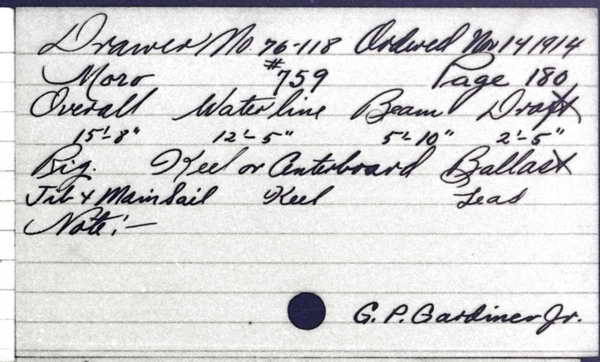 Drawer No 76-118 Ordered Nov 14 1914
Moro #759 Page 180
Overall Waterline Beam Draft
15'-8" 12'-5" 5'-10" 2'-5"
Rig. Keel or Centerboard Ballast
Jib & Mainsail Keel Lead
Note:-
G. P. Gardiner Jr.